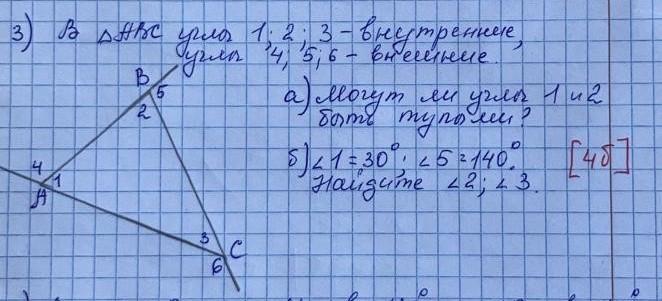 3) В △АВС углы 1; 2; 3 – внутренние,
углы 4; 5; 6 – внешние.
В
5
2
а) Могут ли углы 1 и 2
быть тупыми?
4
1
А
б) ∠1 = 30°; ∠5 = 140°.
[4б]
Найдите ∠2; ∠3.
3
С
6